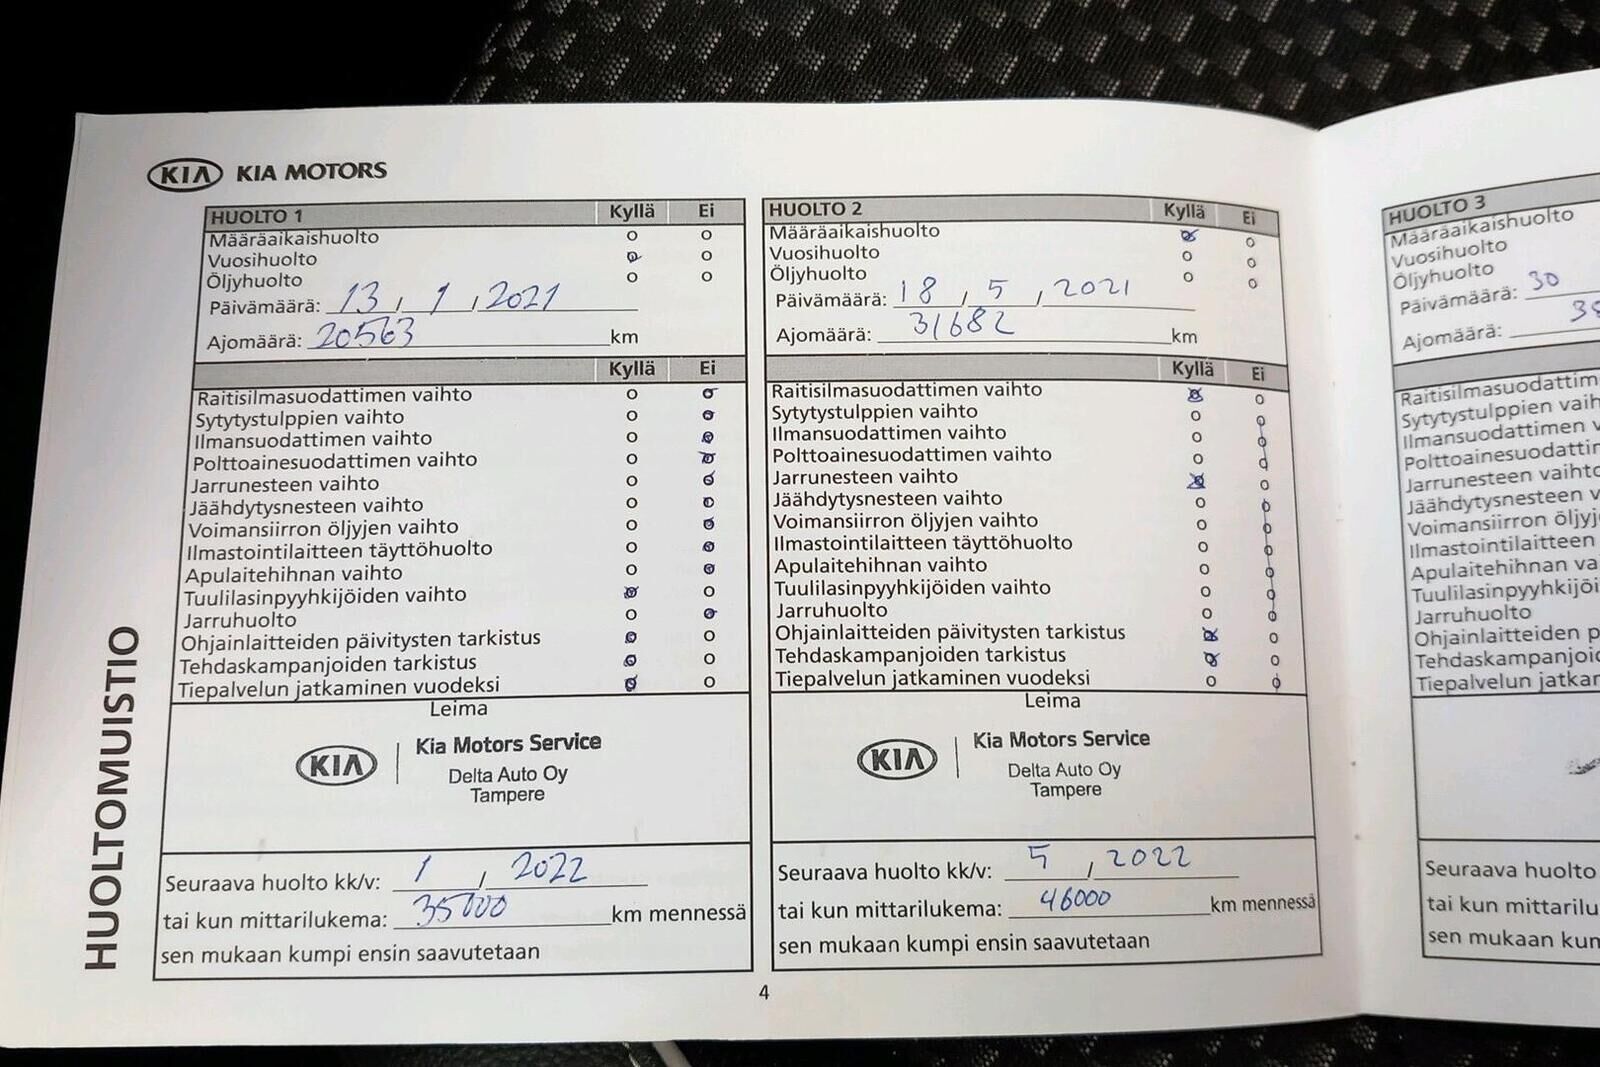 KIA KIA MOTORS
HUOLTOMUISTIO
HUOLTO 1 Kyllä Ei
Määräaikaishuolto o o
Vuosihuolto o o
Öljyhuolto o o
Päivämäärä: 13 / 1 / 2021
Ajomäärä: 20563 km
Kyllä Ei
Raitisilmasuodattimen vaihto o o
Sytytystulppien vaihto o o
Ilmansuodattimen vaihto o o
Polttoainesuodattimen vaihto o o
Jarrunesteen vaihto o o
Jäähdytysnesteen vaihto o o
Voimansiirron öljyjen vaihto o o
Ilmastointilaitteen täyttöhuolto o o
Apulaitehihnan vaihto o o
Tuulilasinpyyhkijöiden vaihto o o
Jarruhuolto o o
Ohjainlaitteiden päivitysten tarkistus o o
Tehdaskampanjoiden tarkistus o o
Tiepalvelun jatkaminen vuodeksi o o
Leima
KIA Kia Motors Service
Delta Auto Oy
Tampere
Seuraava huolto kk/v: 1 / 2022
tai kun mittarilukema: 35000 km mennessä
sen mukaan kumpi ensin saavutetaan
HUOLTO 2 Kyllä Ei
Määräaikaishuolto o o
Vuosihuolto o o
Öljyhuolto o o
Päivämäärä: 18 / 5 / 2021
Ajomäärä: 31682 km
Kyllä Ei
Raitisilmasuodattimen vaihto o o
Sytytystulppien vaihto o o
Ilmansuodattimen vaihto o o
Polttoainesuodattimen vaihto o o
Jarrunesteen vaihto o o
Jäähdytysnesteen vaihto o o
Voimansiirron öljyjen vaihto o o
Ilmastointilaitteen täyttöhuolto o o
Apulaitehihnan vaihto o o
Tuulilasinpyyhkijöiden vaihto o o
Jarruhuolto o o
Ohjainlaitteiden päivitysten tarkistus o o
Tehdaskampanjoiden tarkistus o o
Tiepalvelun jatkaminen vuodeksi o o
Leima
KIA Kia Motors Service
Delta Auto Oy
Tampere
Seuraava huolto kk/v: 5 / 2022
tai kun mittarilukema: 46000 km mennessä
sen mukaan kumpi ensin saavutetaan
4
HUOLTO 3
Määräaikaishuolto
Vuosihuolto
Öljyhuolto
Päivämäärä: 30
Ajomäärä:
Raitisilmasuodattim
Sytytystulppien vaih
Ilmansuodattimen v
Polttoainesuodattim
Jarrunesteen vaihto
Jäähdytysnesteen v
Voimansiirron öljyj
Ilmastointilaitteen
Apulaitehihnan va
Tuulilasinpyyhkijöi
Jarruhuolto
Ohjainlaitteiden p
Tehdaskampanjoid
Tiepalvelun jatkar
Seuraava huolto
tai kun mittarilu
sen mukaan kun